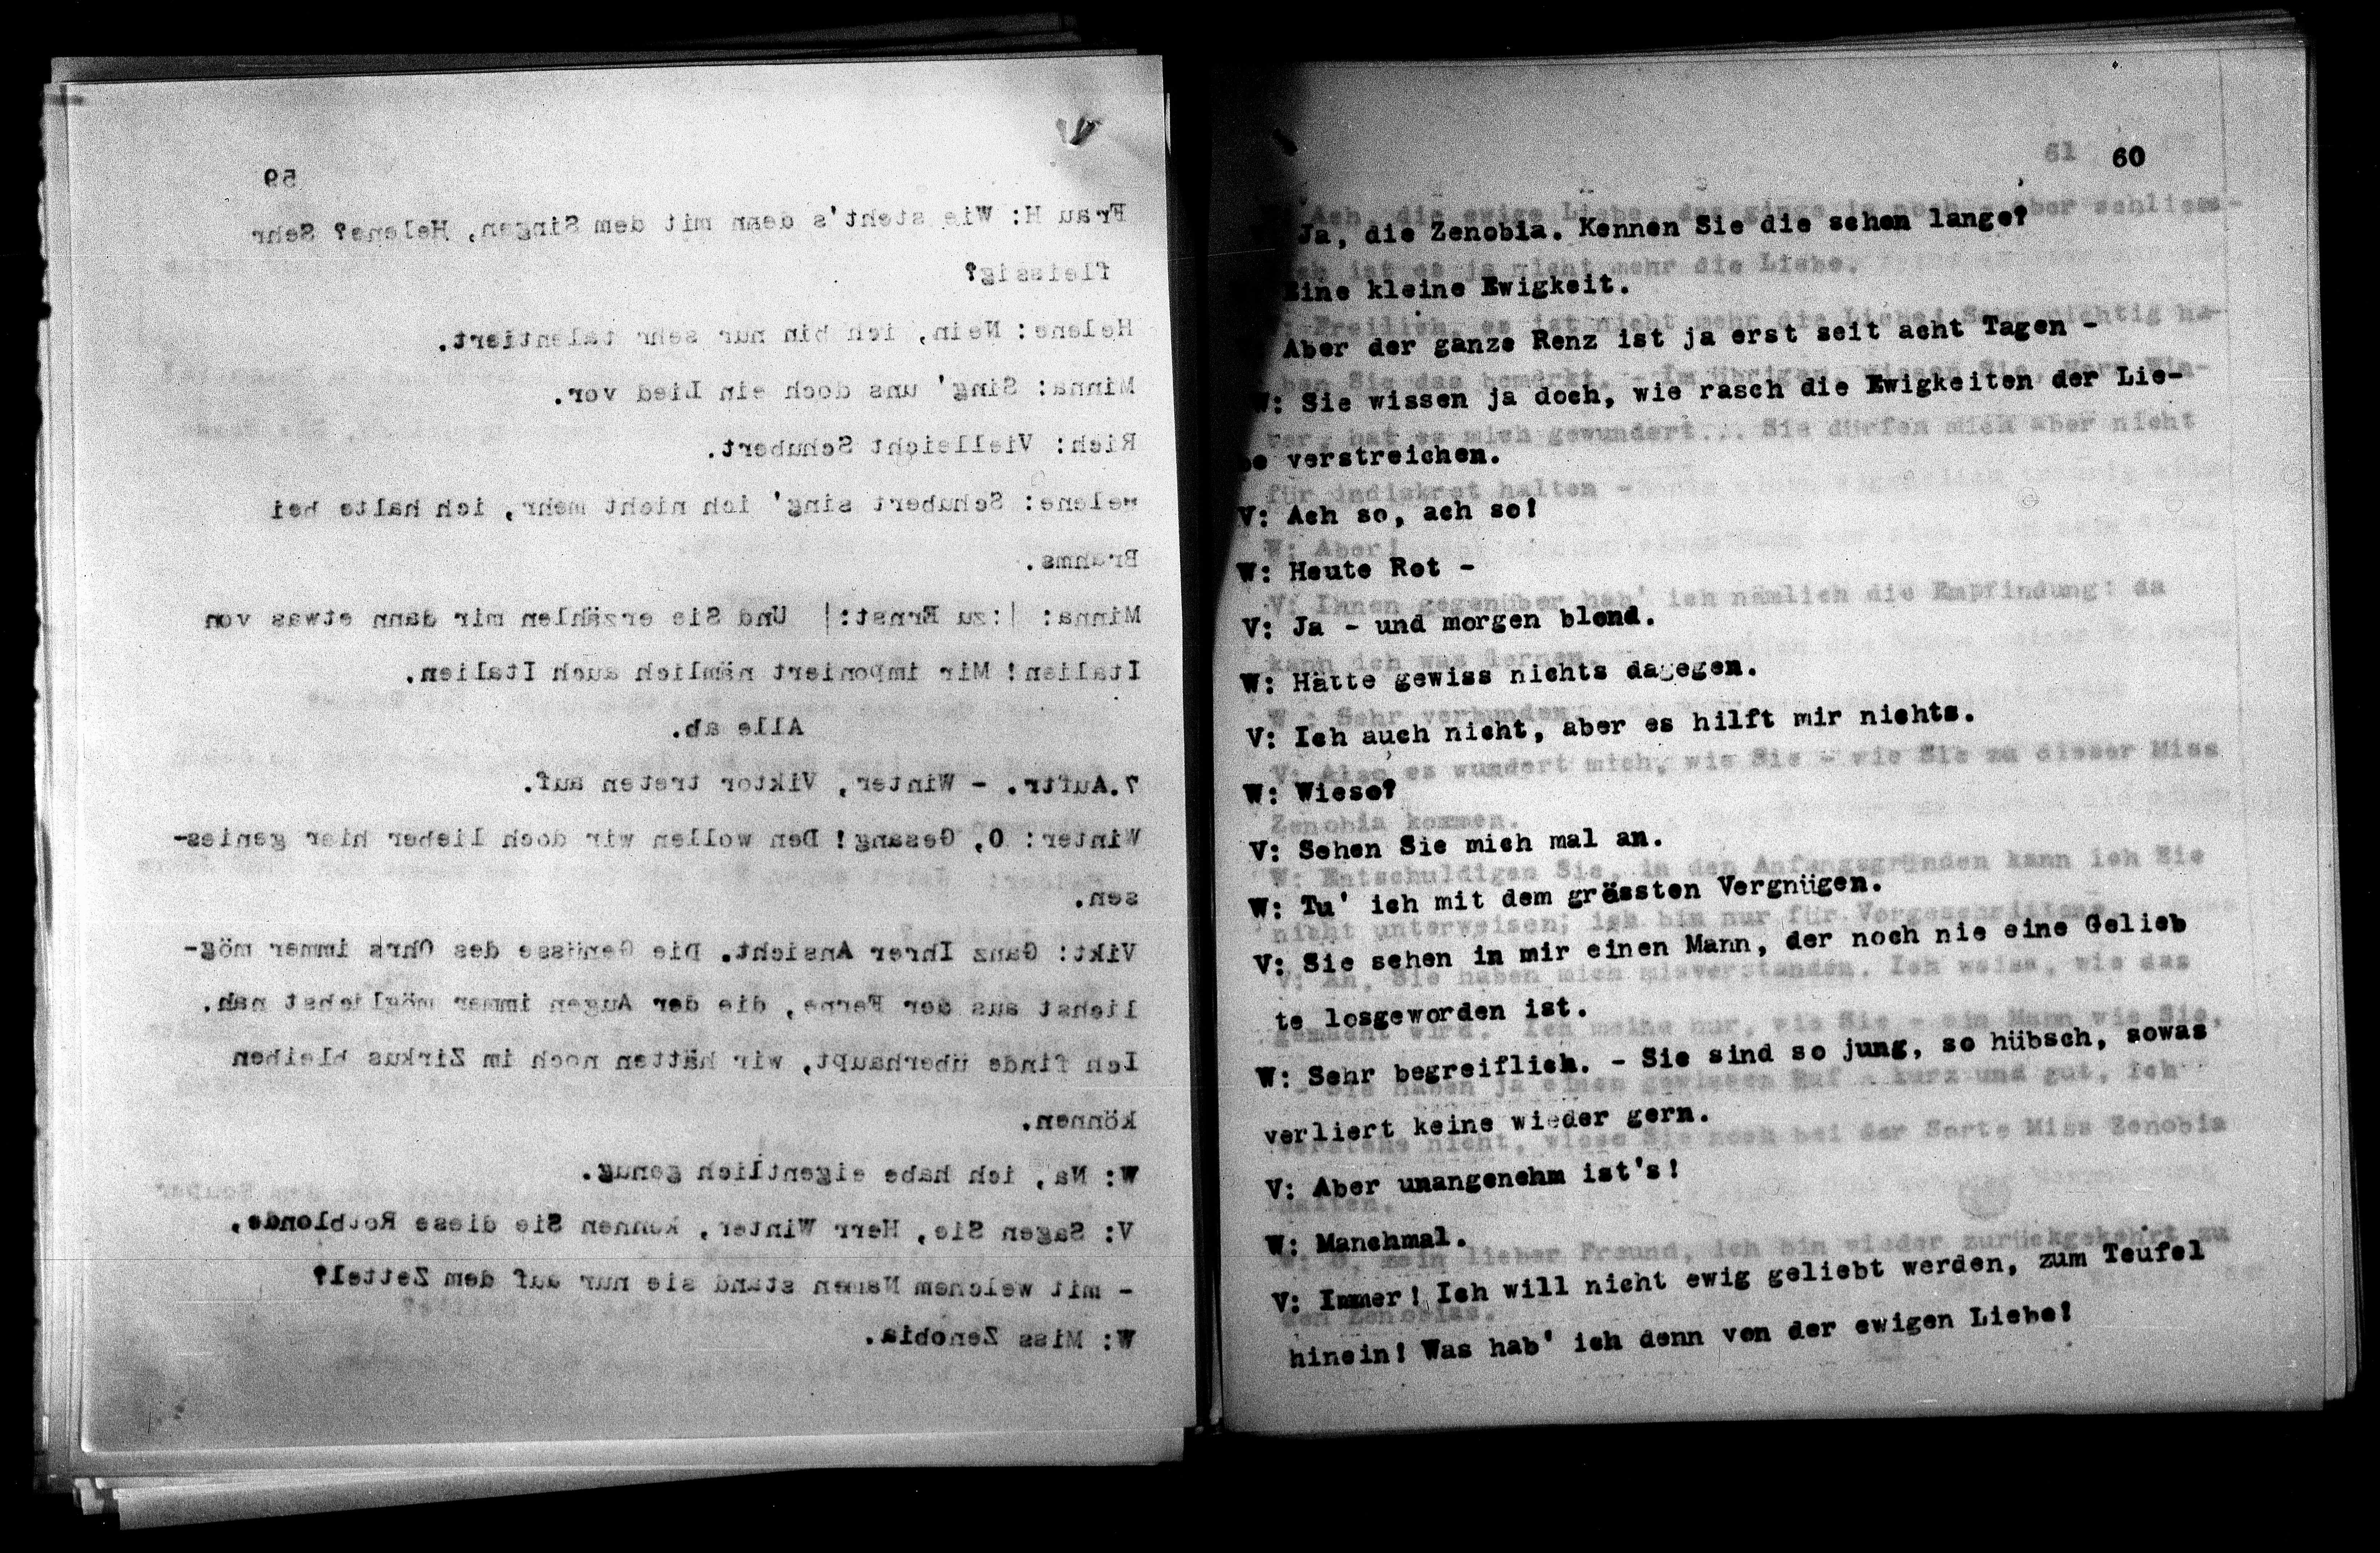 59
Frau H: Wie steht's denn mit dem Singen, Helene? Sehr
fleissig?
Helene: Nein, ich bin nur sehr talentiert.
Minna: Sing' uns doch ein Lied vor.
Rich: Vielleicht Schubert.
Helene: Schubert sing' ich nicht mehr, ich halte bei
Brahms.
Minna: |:zu Ernst:| Und Sie erzählen mir dann etwas von
Italien! Mir imponiert nämlich auch Italien.
Alle ab.
7.Auftr. - Winter, Viktor treten auf.
Winter: O, Gesang! Den wollen wir doch lieber hier genies-
sen.
Vikt: Ganz Ihrer Ansicht. Die Genüsse des Ohrs immer mög-
lichst aus der Ferne, die der Augen immer möglichst nah.
Ich finde überhaupt, wir hätten noch im Zirkus bleiben
können.
W: Na, ich habe eigentlich genug.
V: Sagen Sie, Herr Winter, kennen Sie diese Rotblonde,
- mit welchem Namen stand sie nur auf dem Zettel?
W: Miss Zenobia.
60
Ja, die Zenobia. Kennen Sie die schon lange?
Eine kleine Ewigkeit.
Aber der ganze Renz ist ja erst seit acht Tagen -
W: Sie wissen ja doch, wie rasch die Ewigkeiten der Lie-
be verstreichen.
V: Ach so, ach so!
W: Heute Rot -
V: Ja - und morgen blond.
W: Hätte gewiss nichts dagegen.
V: Ich auch nicht, aber es hilft mir nichts.
W: Wieso?
V: Sehen Sie mich mal an.
W: Tu' ich mit dem grössten Vergnügen.
V: Sie sehen in mir einen Mann, der noch nie eine Gelieb
te losgeworden ist.
W: Sehr begreiflich. - Sie sind so jung, so hübsch, sowas
verliert keine wieder gern.
V: Aber unangenehm ist's!
W: Manchmal.
V: Immer! Ich will nicht ewig geliebt werden, zum Teufel
hinein! Was hab' ich denn von der ewigen Liebe!